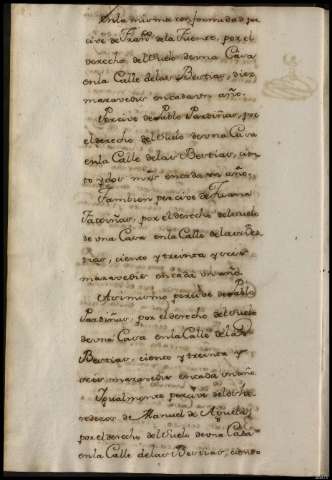 En la misma conformidad per
cive de Franco de la Fuente, por el
derecho del suelo de una Casa
en la Calle de las Bestias, diez
maravedis en cada un año.
Percive de Pablo Pardiñas, por
el derecho del suelo de una Casa
en la Calle de las Bestias, cien
to y dos mrs en cada un año.
Tambien percive de Juana
por el derecho del suelo
de una Casa en la Calle de las Bes
tias, ciento y treinta y tres
maravedis en cada un año
Asimismo percive de Pablo
Pardiñas, por el derecho del suelo
de una Casa en la Calle de las
Bestias, ciento y treinta y
seis maravedis en cada un año.
Igualmente percive de los he
rederos de Manuel de
por el derecho del suelo de una Casa
en la Calle de las Bestias, ciento